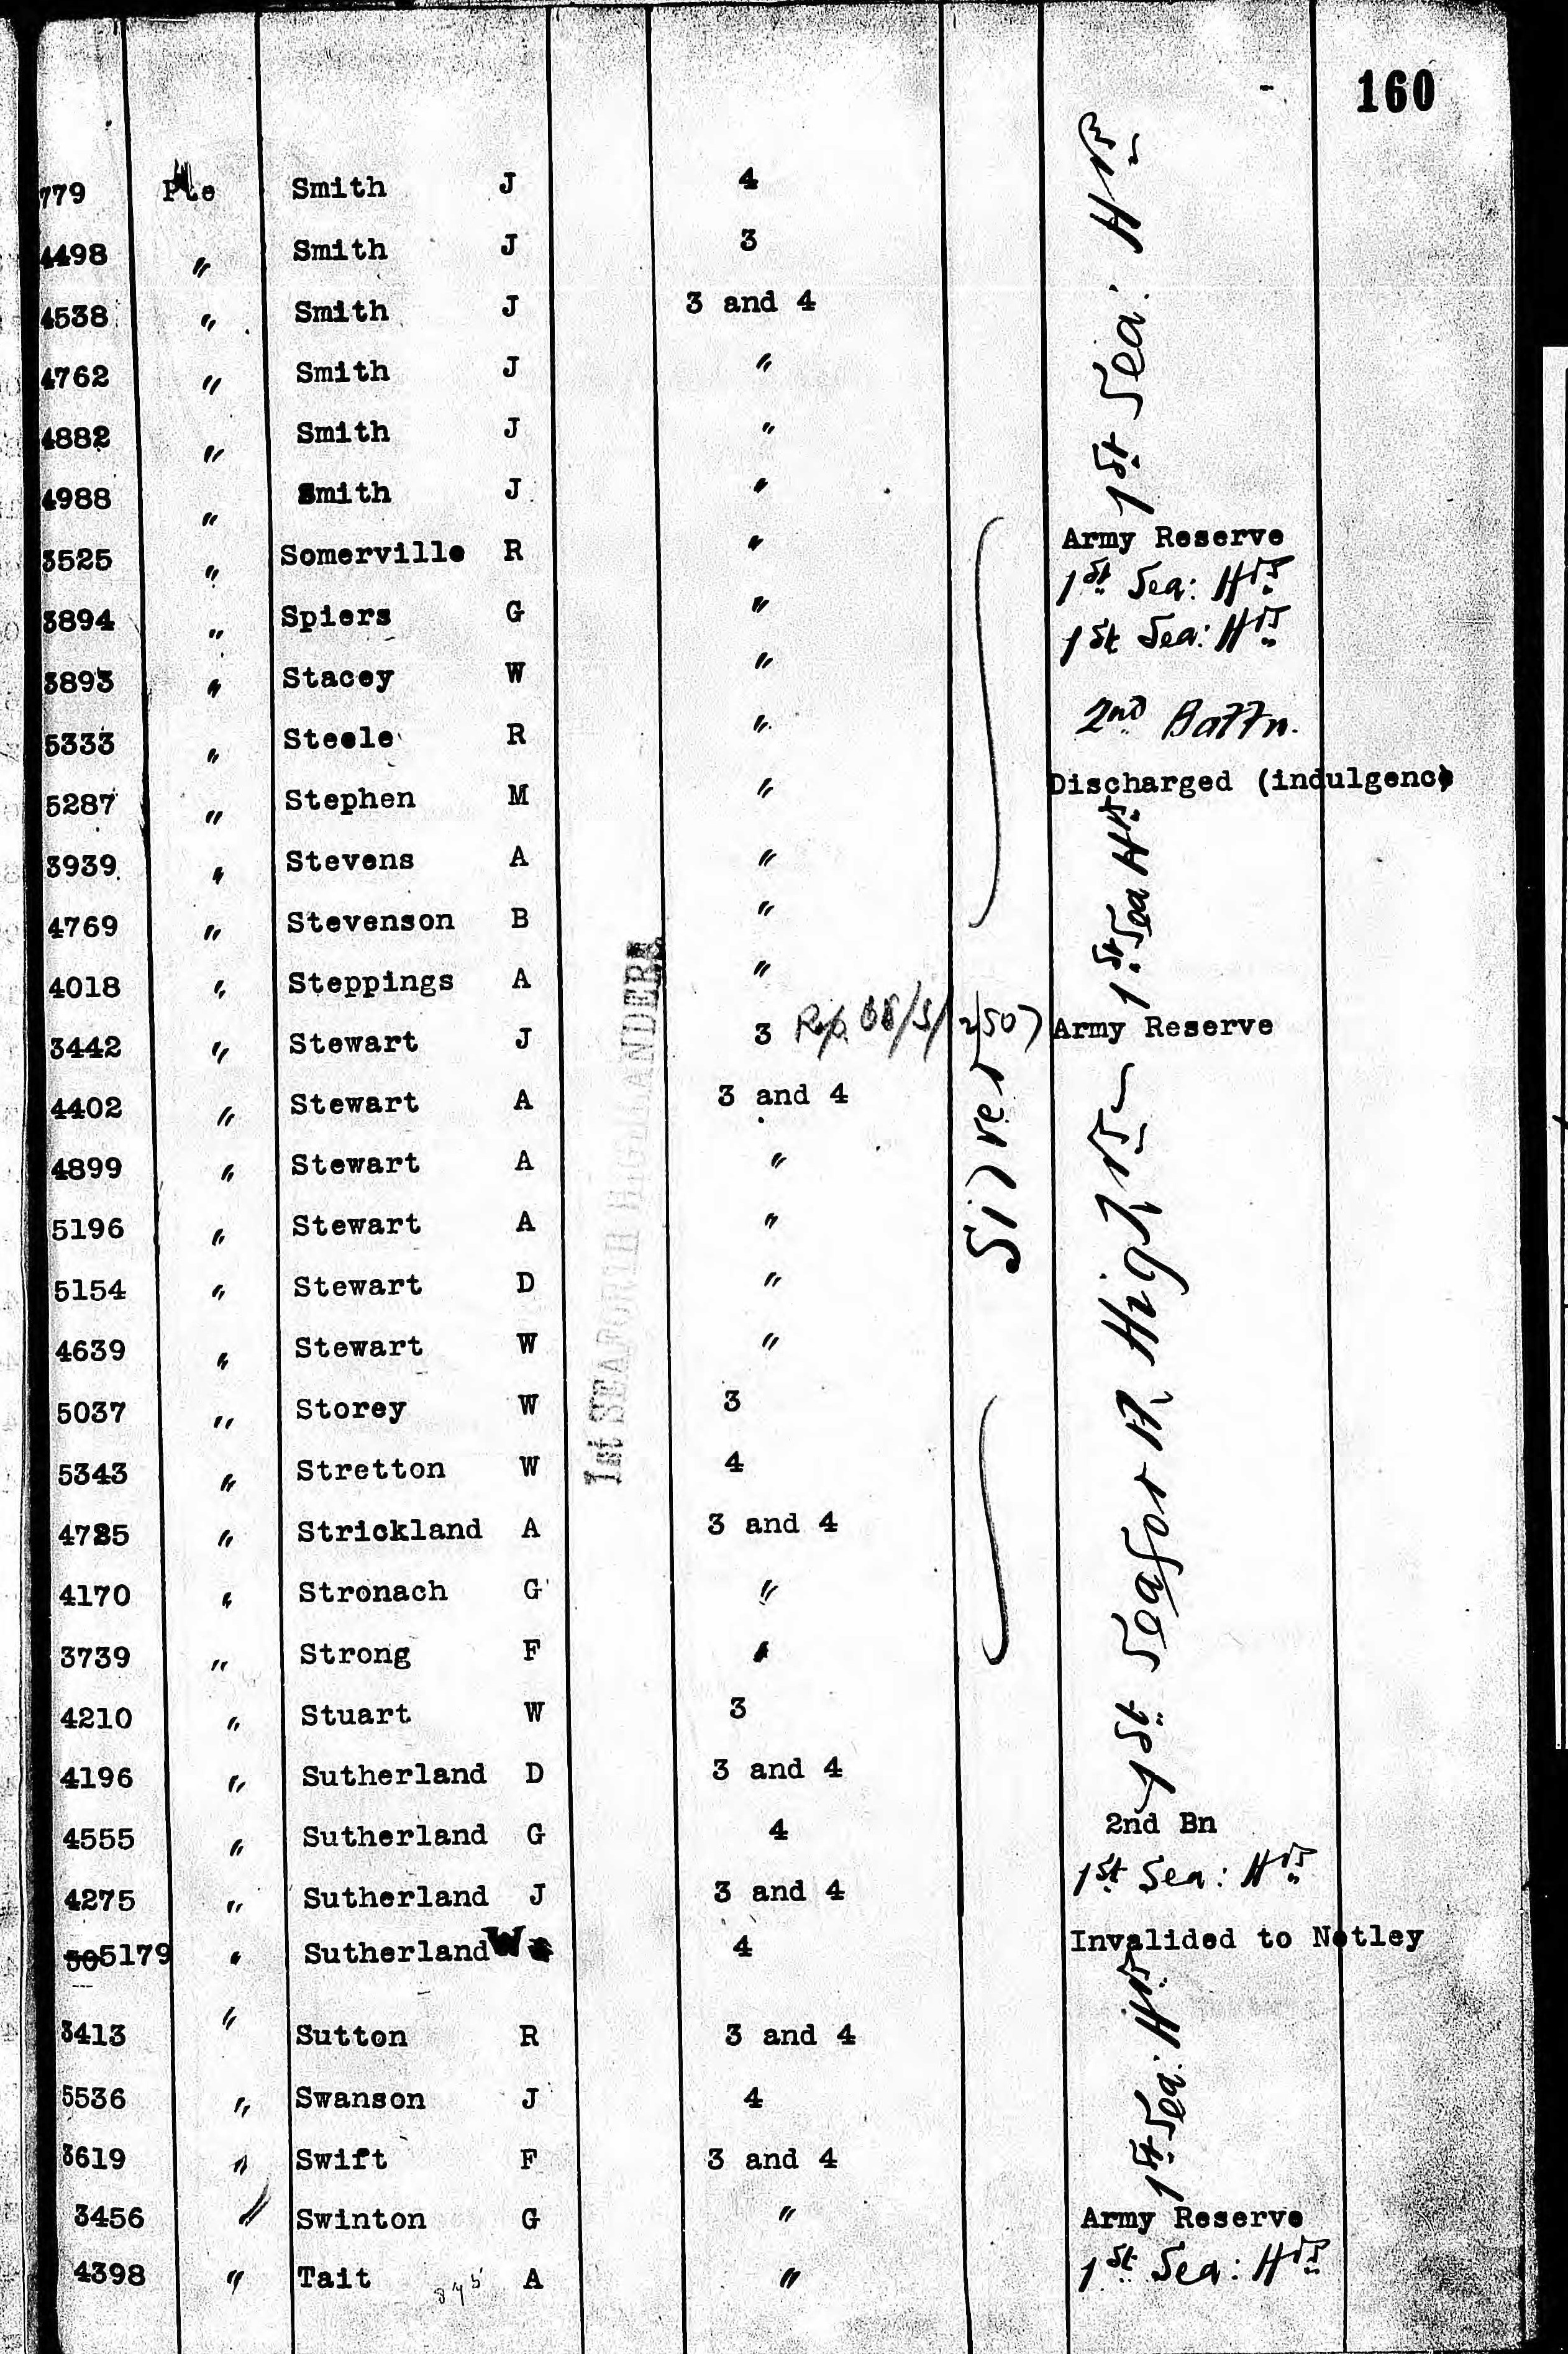 160
779 Pte Smith J 4 1st Sea: Hrs
4498 " Smith J 3
4538 " Smith J 3 and 4
4762 " Smith J "
4882 " Smith J "
4988 " Smith J "
3525 " Somerville R " Army Reserve
3894 " Spiers G " 1st Sea: Hrs
3893 " Stacey W " 1st Sea: Hrs
5333 " Steele R " 2nd Battn.
5287 " Stephen M " Discharged (indulgence)
3939 " Stevens A " 1st Sea Hrs
4769 " Stevenson B "
4018 " Steppings A "
3442 " Stewart J 3 Army Reserve
4402 " Stewart A 3 and 4
4899 " Stewart A "
5196 " Stewart A "
5154 " Stewart D "
4639 " Stewart W "
5037 " Storey W 3
5343 " Stretton W 4
4785 " Strickland A 3 and 4
4170 " Stronach G "
3739 " Strong F "
4210 " Stuart W 3
4196 " Sutherland D 3 and 4
4555 " Sutherland G 4 2nd Bn
4275 " Sutherland J 3 and 4 1st Sea: Hrs
5179 " Sutherland W 4 Invalided to Netley
3413 " Sutton R 3 and 4 1st Sea: Hrs
5536 " Swanson J 4
3619 " Swift F 3 and 4
3456 " Swinton G " Army Reserve
4398 " Tait A " 1st Sea: Hrs
1st SEAFORTH HIGHLANDERS.
Silver
1st Seaforth Highrs